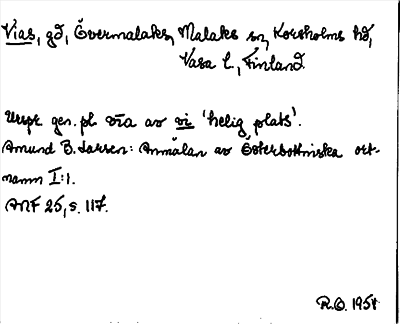 Vias, gd, Övermalaks, Malaks sn, Korsholms hd,
Vasa l., Finland.
Urspr. gen. pl. vīa av vi 'helig plats'.
Amund B. Larsen: Anmälan av Österbottniska ort-
namn I:1.
ANF 25, s. 117.
R.O. 1958